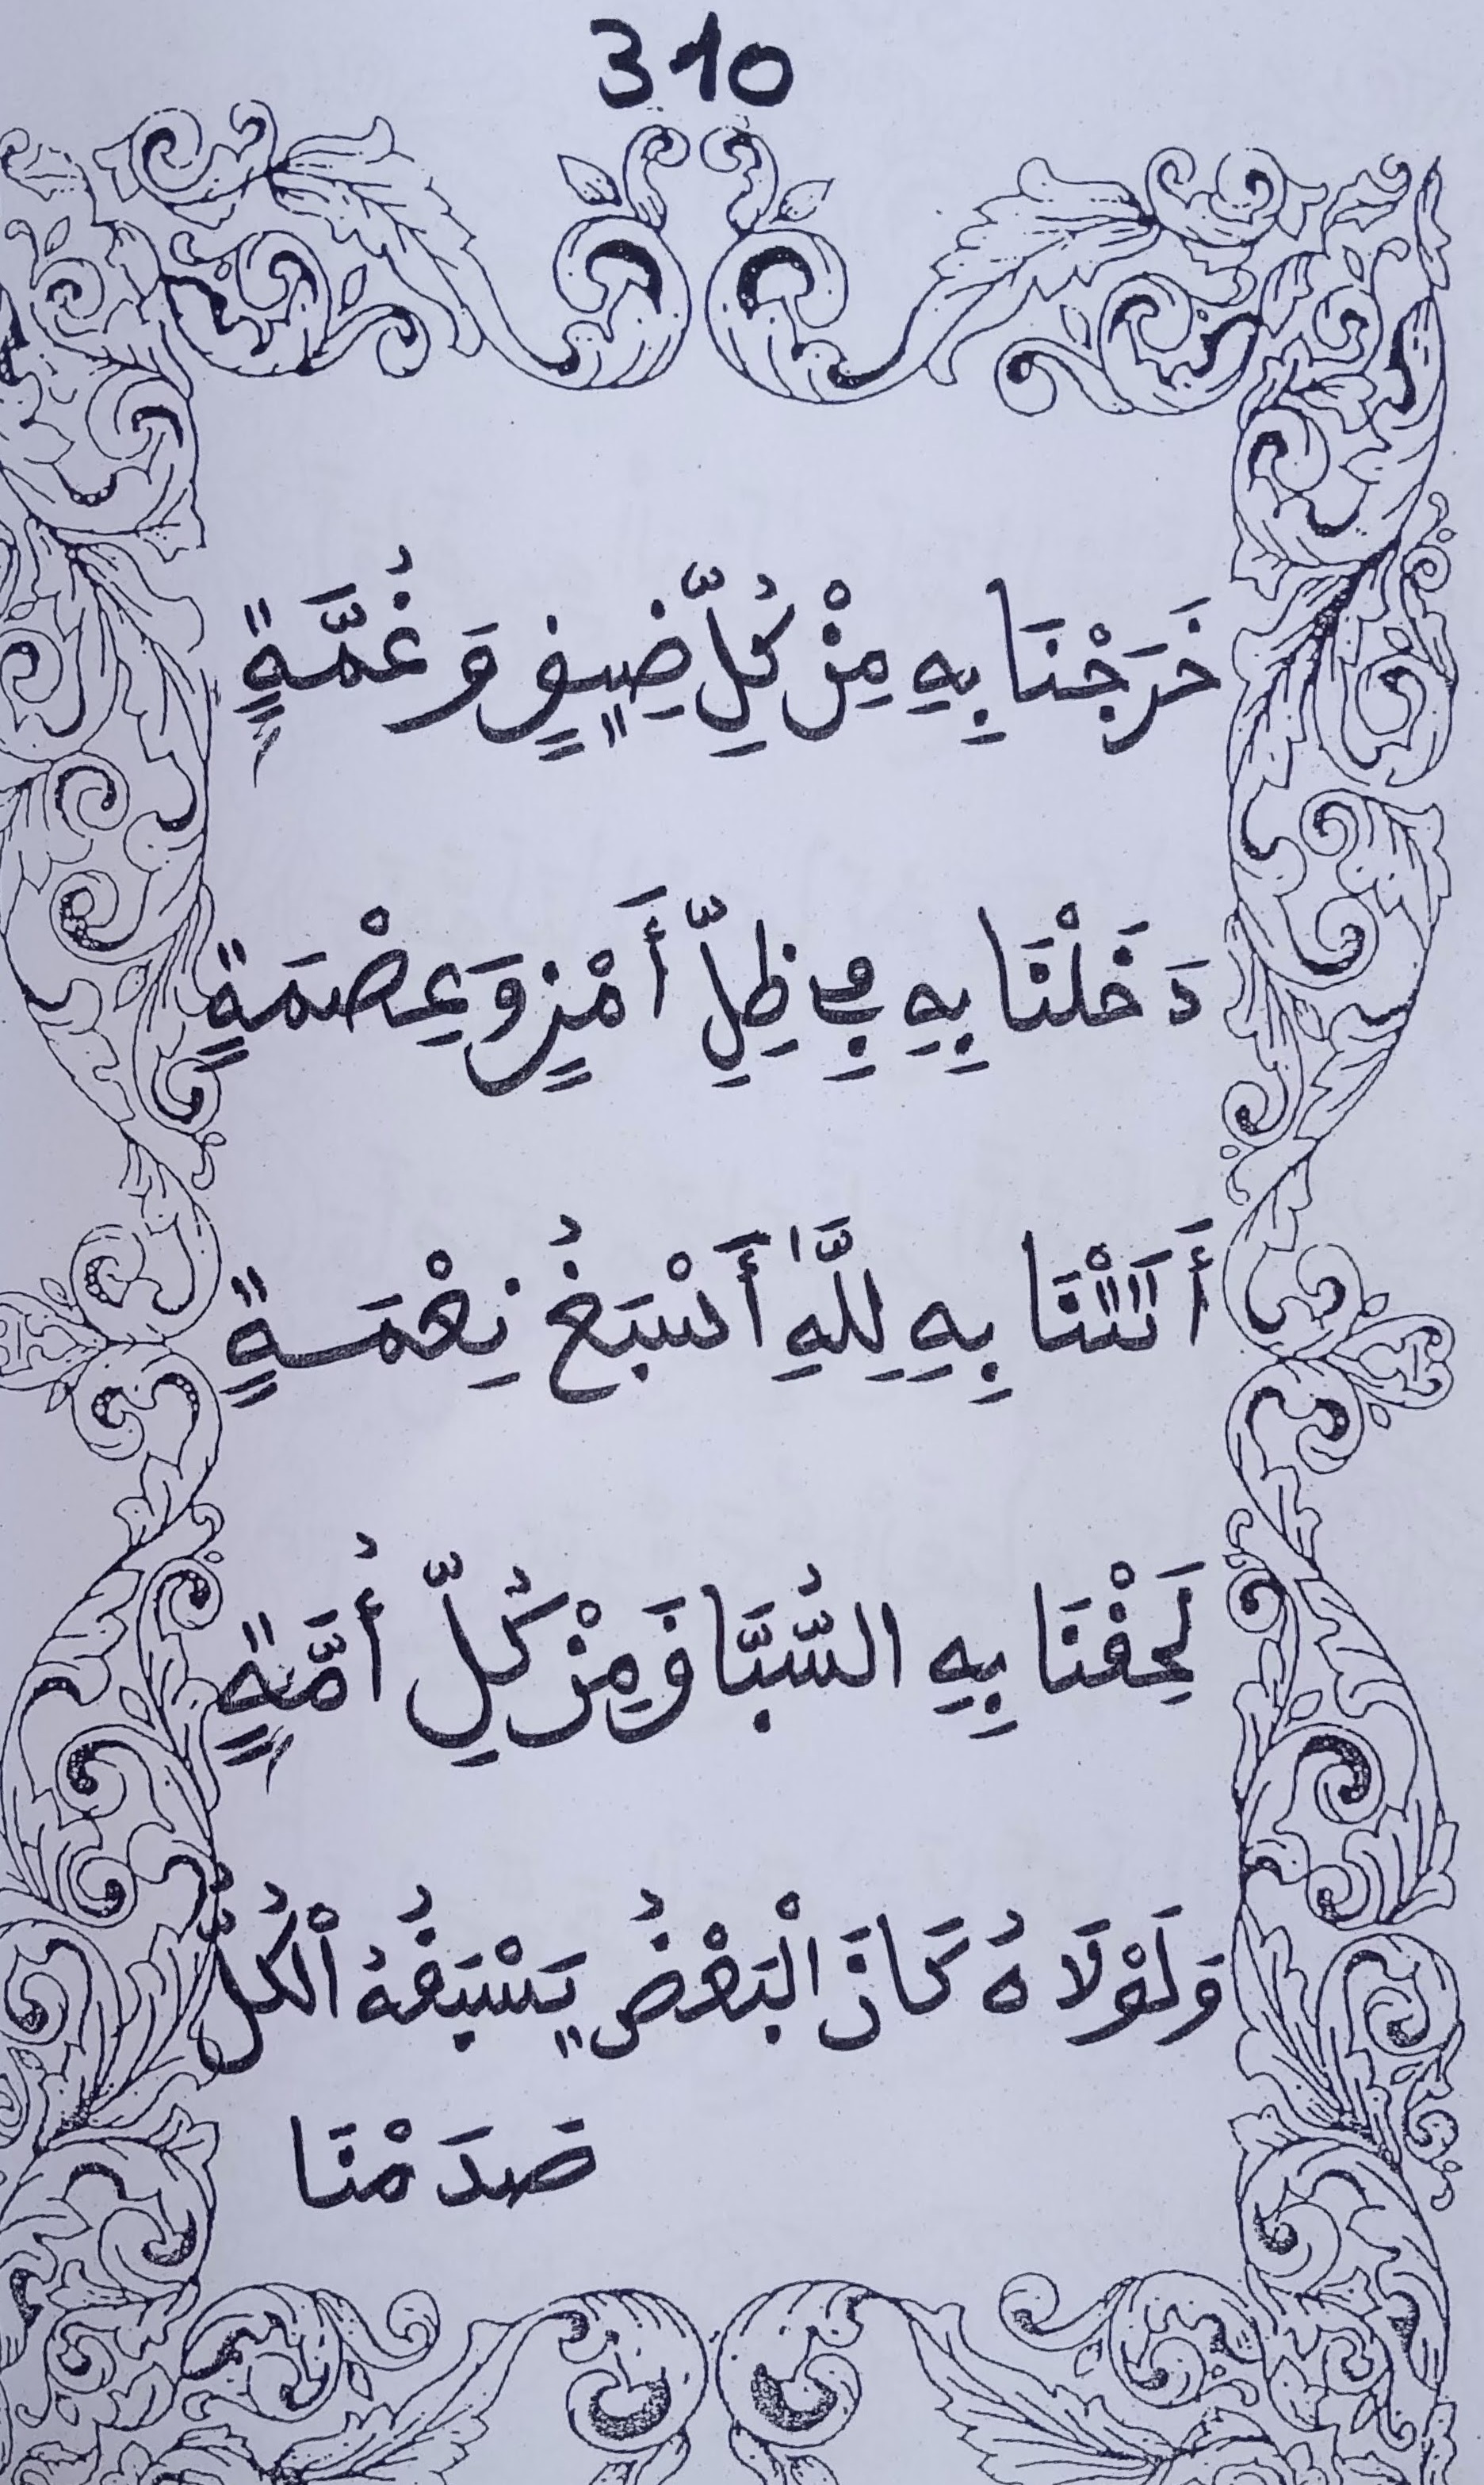 310
خَرَجْنَا بِهِ مِنْ كُلِّ ضِيقٍ وَغُمَّةٍ
دَخَلْنَا بِهِ فِي ظِلِّ أَمْنٍ وَعِصْمَةٍ
أَتَتْنَا بِهِ لِلَّهِ أَسْبَغُ نِعْمَةٍ
لَحِقْنَا بِهِ السُّبَّاقَ مِنْ كُلِّ أُمَّةٍ
وَلَوْلَاهُ كَانَ الْبَعْضُ يَسْبَقُهُ الْكُلُّ
صَدَمْنَا